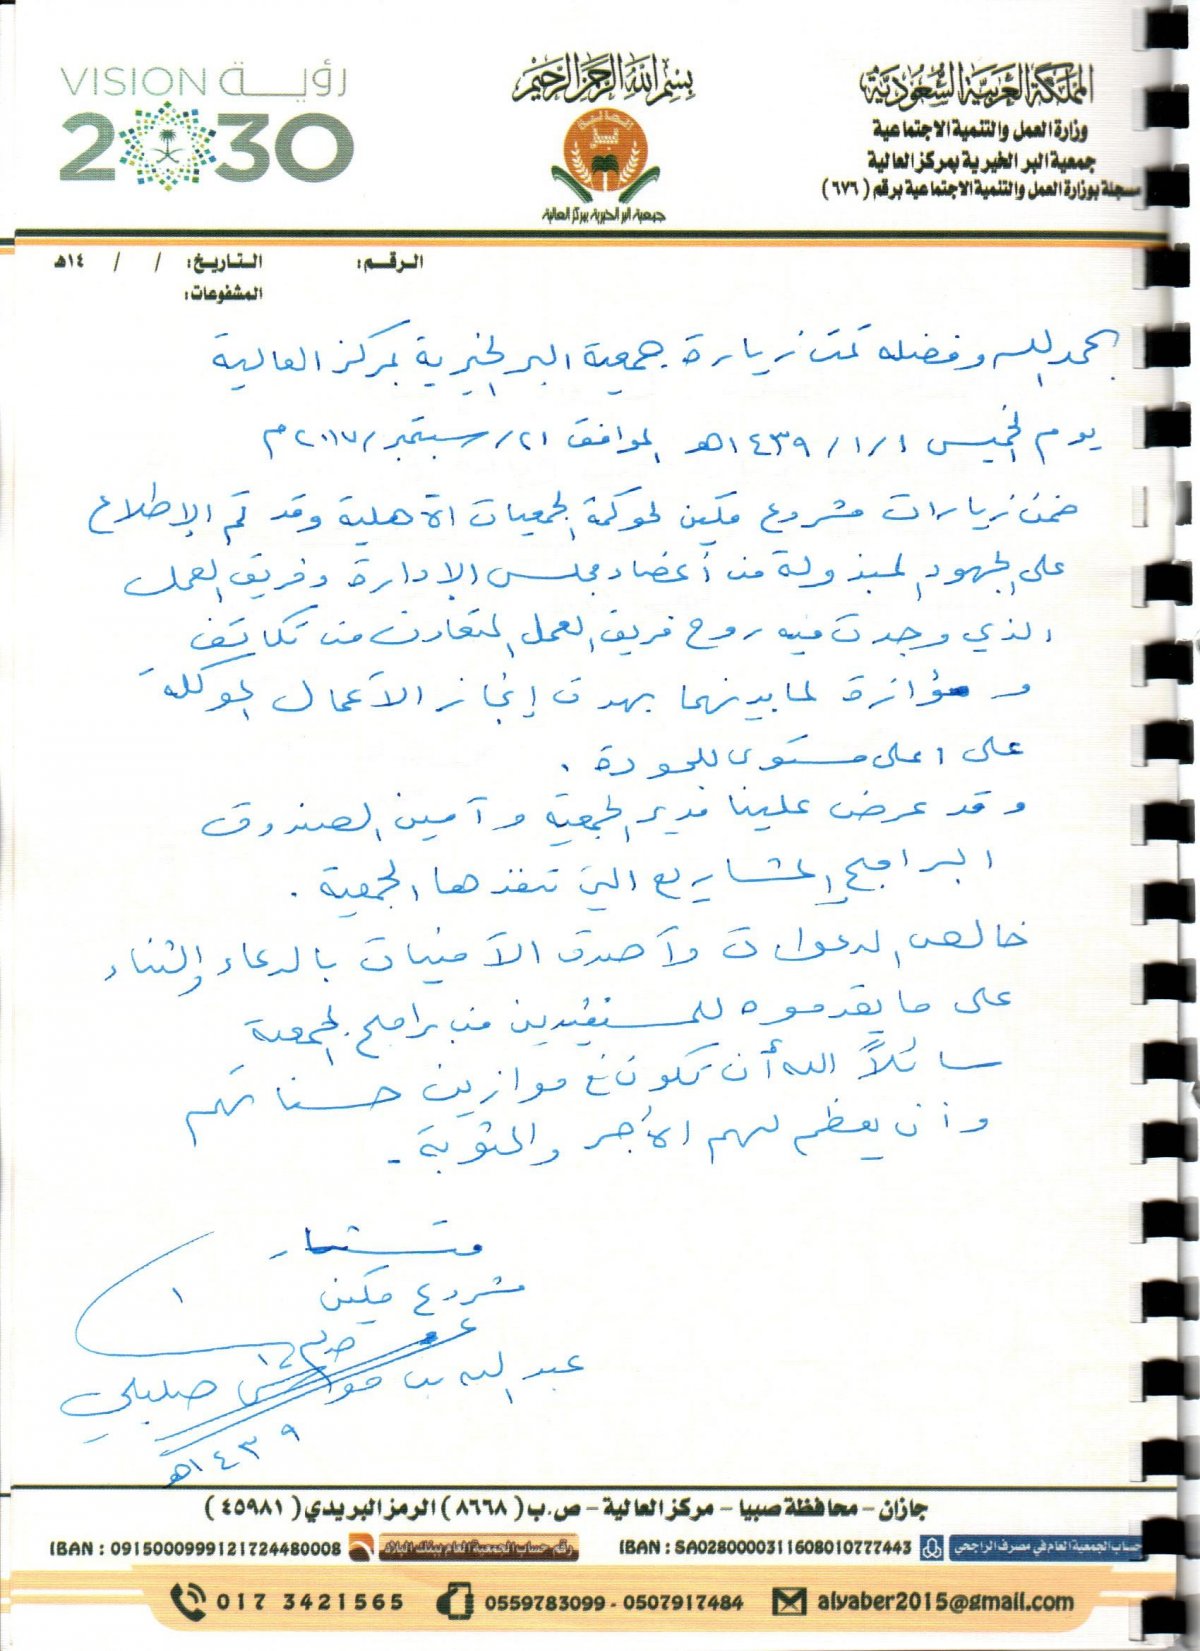 المملكة العربية السعودية
وزارة العمل والتنمية الاجتماعية
جمعية البر الخيرية بمركز العالية
مسجلة بوزارة العمل والتنمية الاجتماعية برقم (٦٧٦)
بسم الله الرحمن الرحيم
جمعية البر الخيرية بمركز العالية
VISION رؤية
2030
الرقم:
التاريخ: / / ١٤هـ
المشفوعات:
بحمد الله وفضله تمت زيارة جمعية البر الخيرية بمركز العالية
يوم الخميس ١/١/١٤٣٩هـ الموافق ٢١/سبتمبر/٢٠١٧م
ضمن زيارات مشروع مكين لحوكمة الجمعيات الأهلية وقد تم الإطلاع
على الجهود المبذولة من أعضاء مجلس الإدارة وفريق العمل
الذي وجدت فيه روح فريق العمل المتعاون من تكاتف
و مؤازرة لما بينهما بهدف إنجاز الأعمال الموكلة
على اعلى مستوى للجودة .
وقد عرض علينا مدير الجمعية وأمين الصندوق
البرامج والمشاريع التي تنفذها الجمعية .
خالص الدعوات وأصدق الأمنيات بالدعاء والثناء
على ما يقدموه للمستفيدين من برامج الجمعية
سائلاً الله أن تكون في موازين حسناتهم
وأن يعظم لهم الأجر والمثوبة .
مستشار
مشروع مكين
عبد الله بن صليلي
١٤٣٩هـ
جازان - محافظة صبيا - مركز العالية - ص.ب (٨٦٦٨) الرمز البريدي (٤٥٩٨١)
حساب الجمعية العام في مصرف الراجحي IBAN : SA0280000311608010777443
رقم حساب الجمعية العام ببنك البلاد IBAN : 0915000999121724480008
017 3421565
0559783099 - 0507917484
alyaber2015@gmail.com